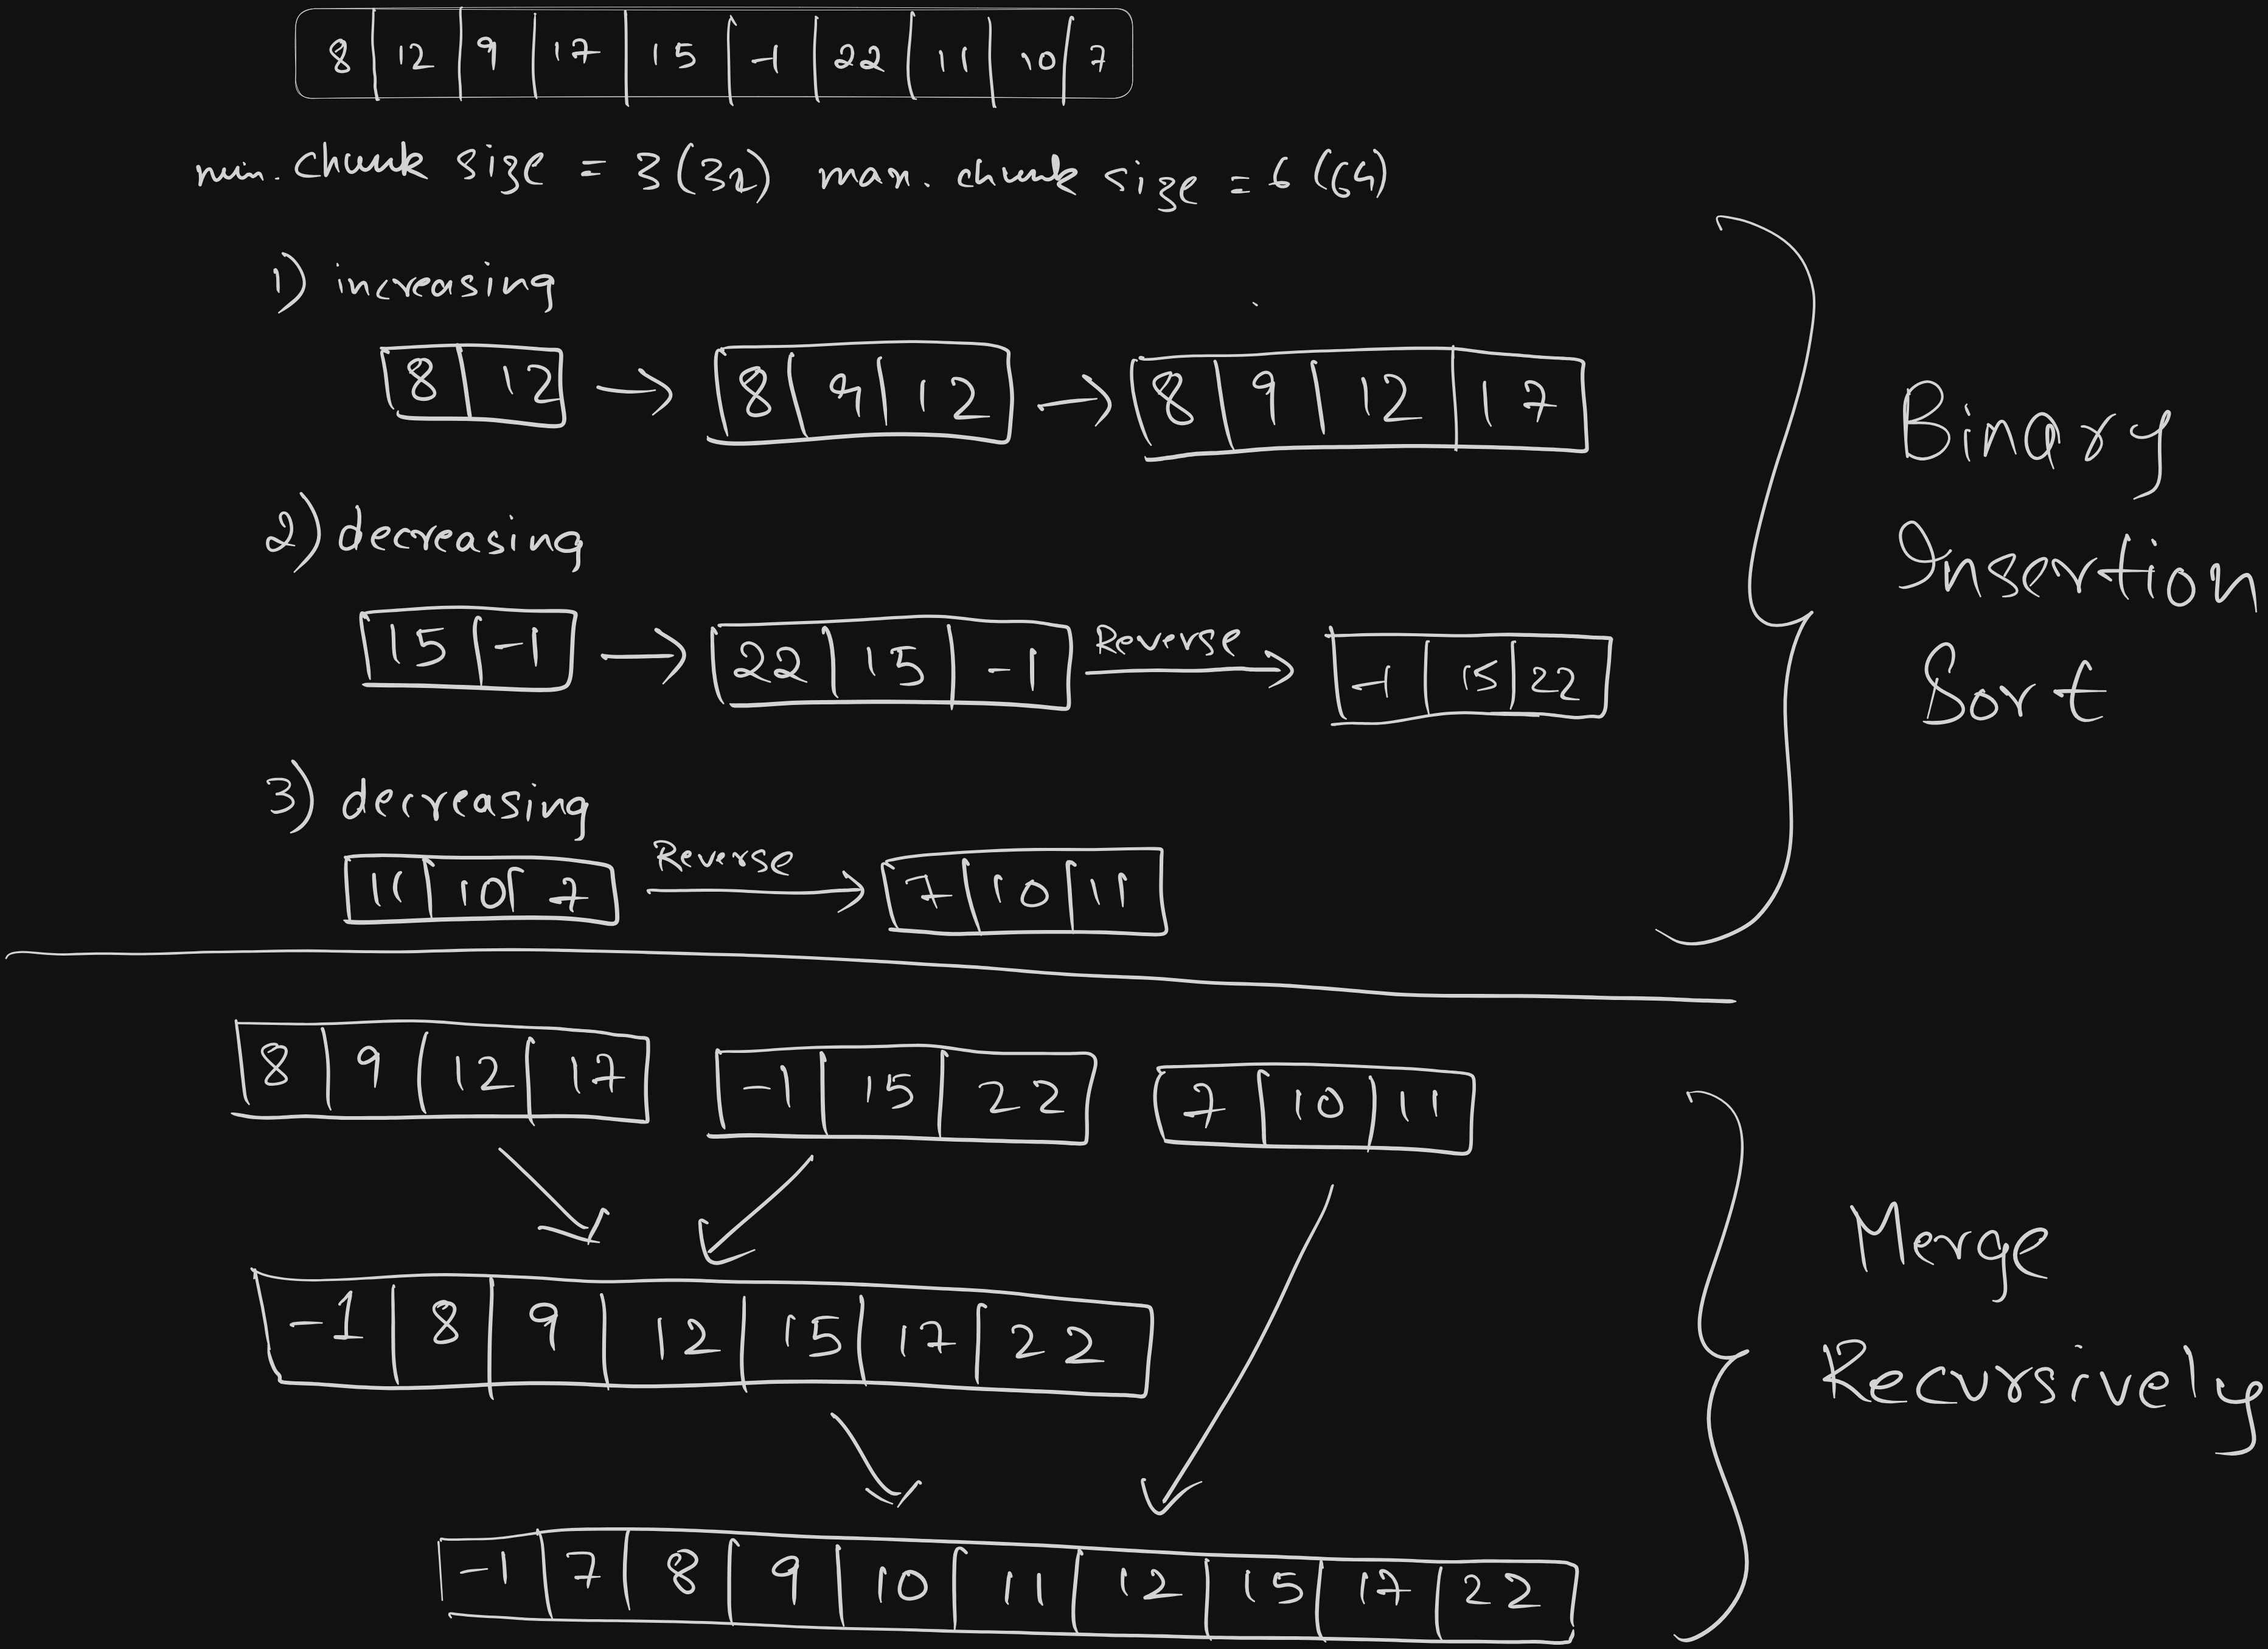 8 12 9 17 15 -1 22 11 10 7
min. chunk size = 3 (32) max. chunk size = 6 (64)
1) increasing
8 12 → 8 9 12 → 8 9 12 17
2) decreasing
15 -1 → 22 15 -1 Reverse → -1 15 22
3) decreasing
11 10 7 Reverse → 7 10 11
Binary
Insertion
Sort
8 9 12 17 -1 15 22 7 10 11
-1 8 9 12 15 17 22
-1 7 8 9 10 11 12 15 17 22
Merge
Recursively